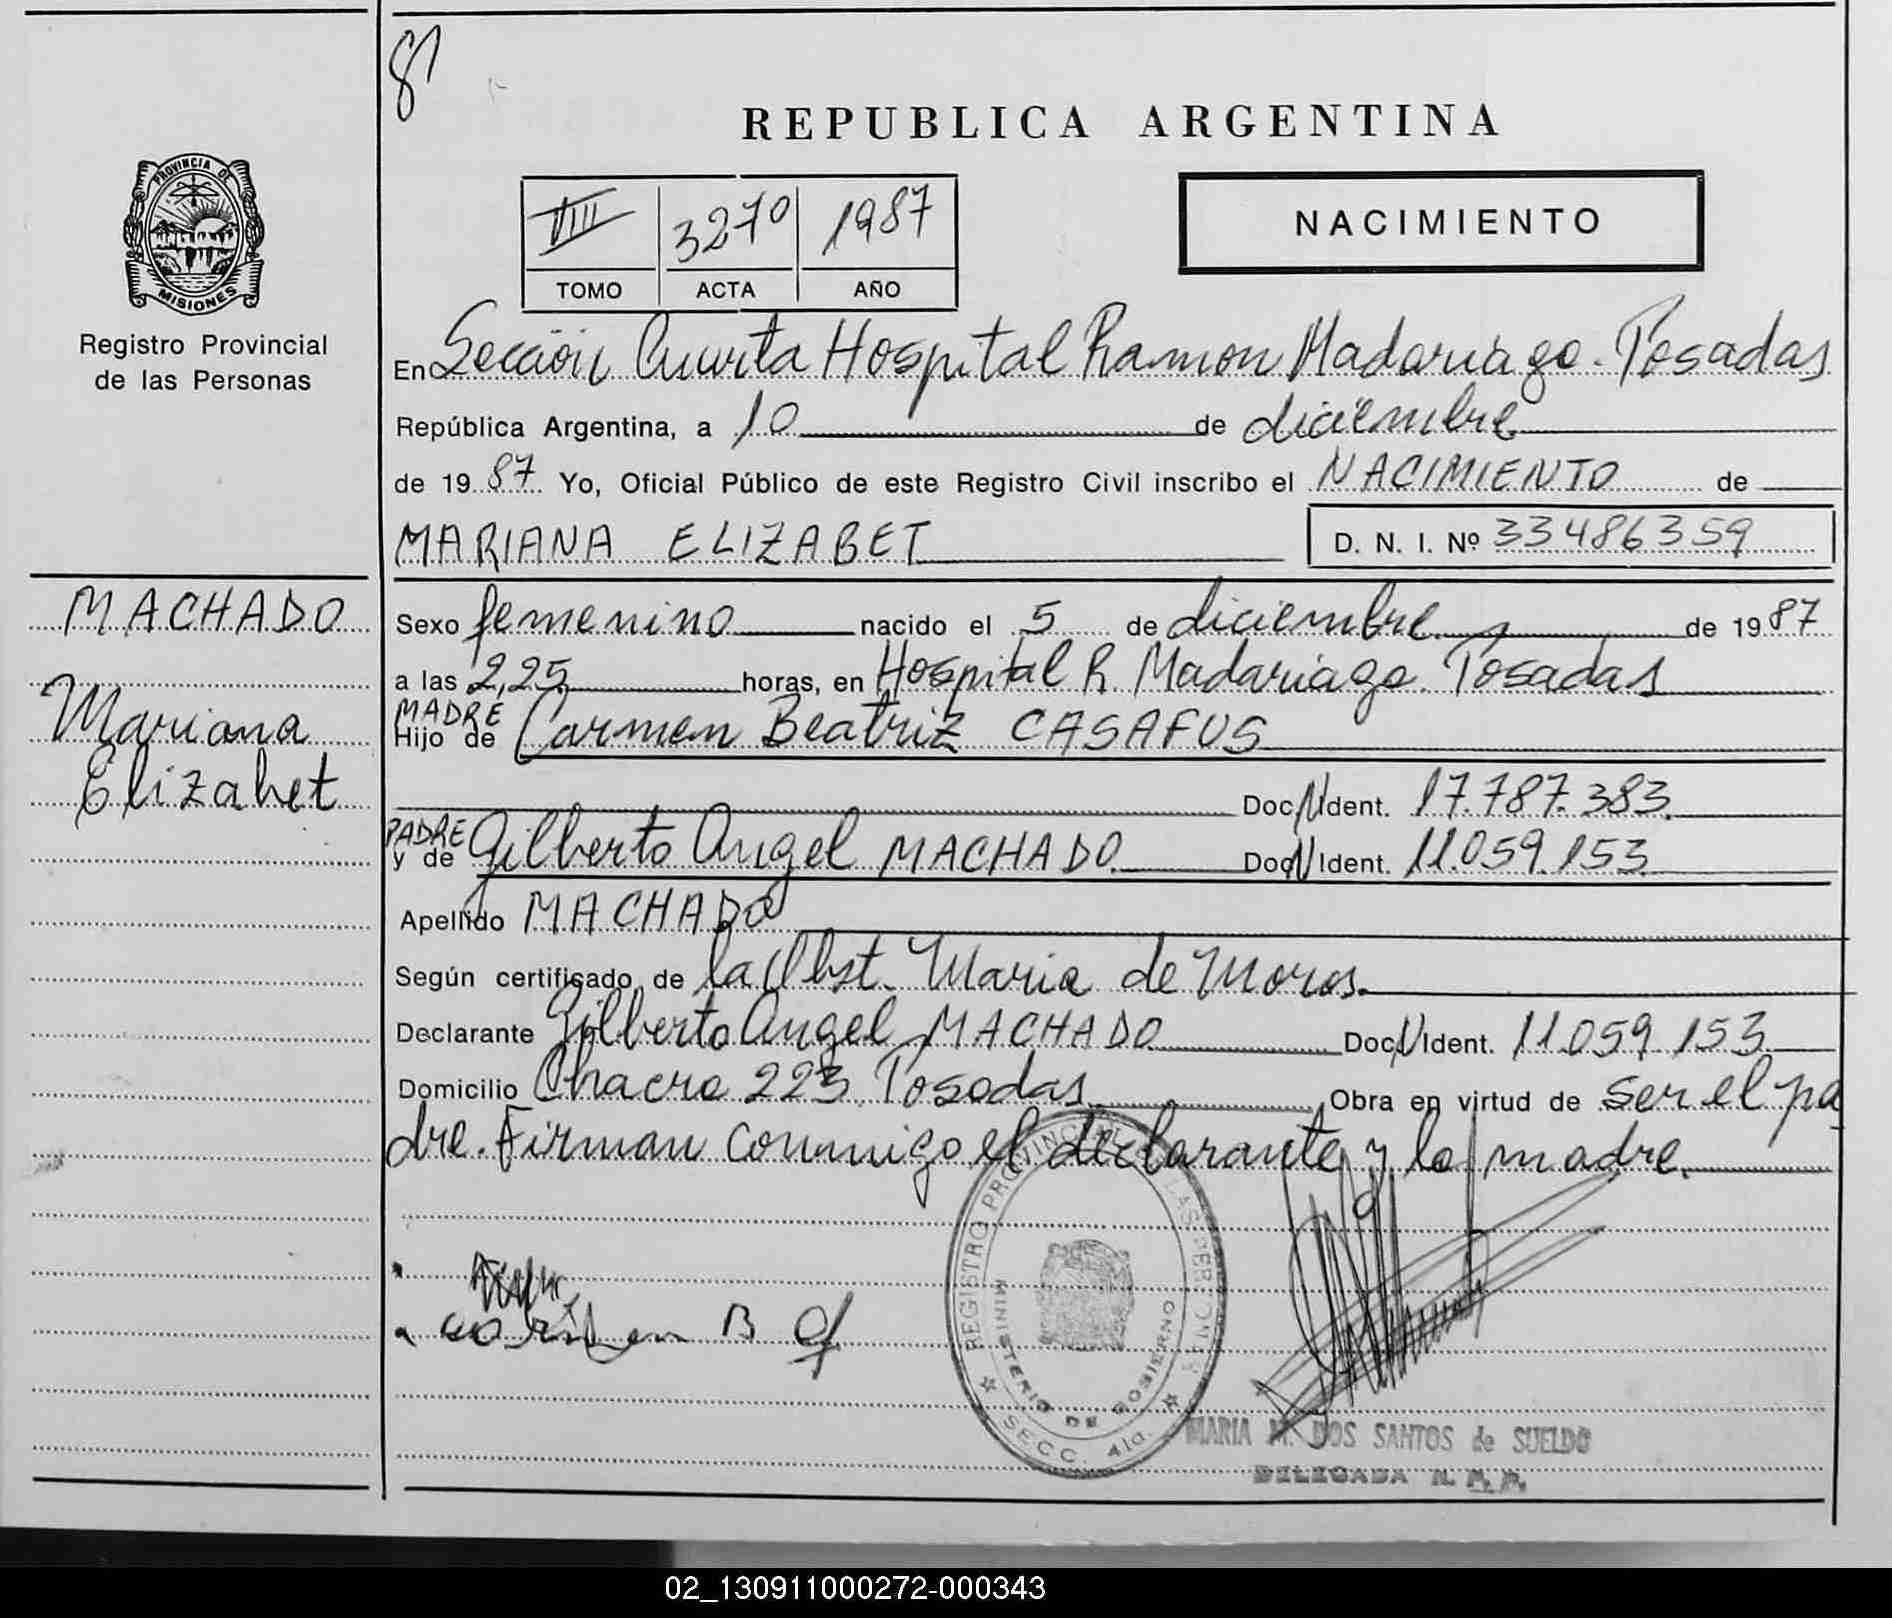 81
REPUBLICA ARGENTINA
PROVINCIA DE
MISIONES
Registro Provincial
de las Personas
VIII 3270 1987
TOMO ACTA AÑO
NACIMIENTO
En Sección Cuarta Hospital Ramon Madariaga. Posadas
República Argentina, a 10 de diciembre
de 1987 Yo, Oficial Público de este Registro Civil inscribo el NACIMIENTO de
MARIANA ELIZABET D. N. I. Nº 33486359
MACHADO
Mariana
Elizabet
Sexo femenino nacido el 5 de diciembre de 1987
a las 2,25 horas, en Hospital R. Madariaga. Posadas
MADRE
Hijo de Carmen Beatriz CASAFUS
Doc. N Ident. 17.787.383
PADRE
y de Gilberto Angel MACHADO Doc N Ident. 11.059.153
Apellido MACHADO
Según certificado de la Obst. Maria de Moros
Declarante Gilberto Angel MACHADO Doc. N Ident. 11.059.153
Domicilio Chacra 223 Posadas Obra en virtud de ser el pa
dre. Firman conmigo el declarante y la madre.
REGISTRO PROVINCIAL DE LAS PERSONAS
MINISTERIO DE GOBIERNO
SECC. 4ta.
MARIA M. DOS SANTOS de SUELDO
DELEGADA
02_130911000272-000343